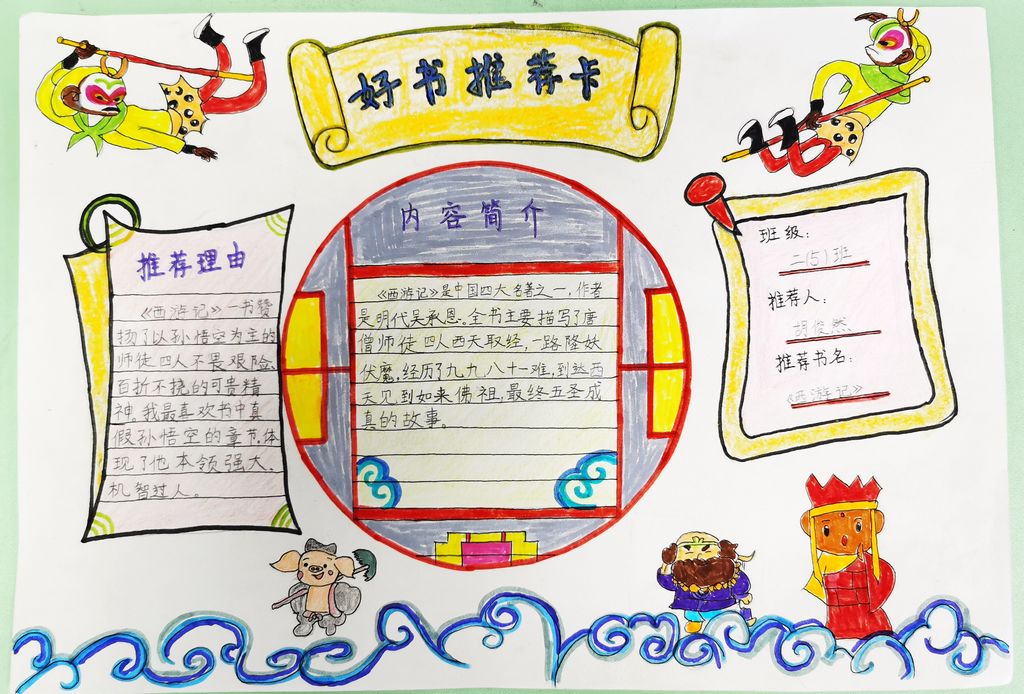 好书推荐卡
推荐理由
《西游记》一书赞
扬了以孙悟空为主的
师徒四人不畏艰险、
百折不挠的可贵精
神。我最喜欢书中真
假孙悟空的章节,体
现了他本领强大、
机智过人。
内容简介
《西游记》是中国四大名著之一,作者
是明代吴承恩。全书主要描写了唐
僧师徒四人西天取经,一路降妖
伏魔,经历了九九八十一难,到达西
天见到如来佛祖,最终五圣成
真的故事。
班级:
二(5)班
推荐人:
胡俊然
推荐书名:
《西游记》